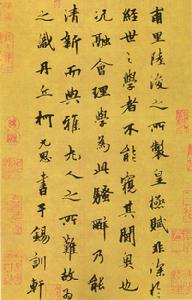 甫里陸浚之所製皇極賦非深於
經世之學者不能窺其閫奥也
況融會理學為此騷辭乃能
清新而典雅尤人之所難故為
之識丹丘柯九思書于錫訓軒